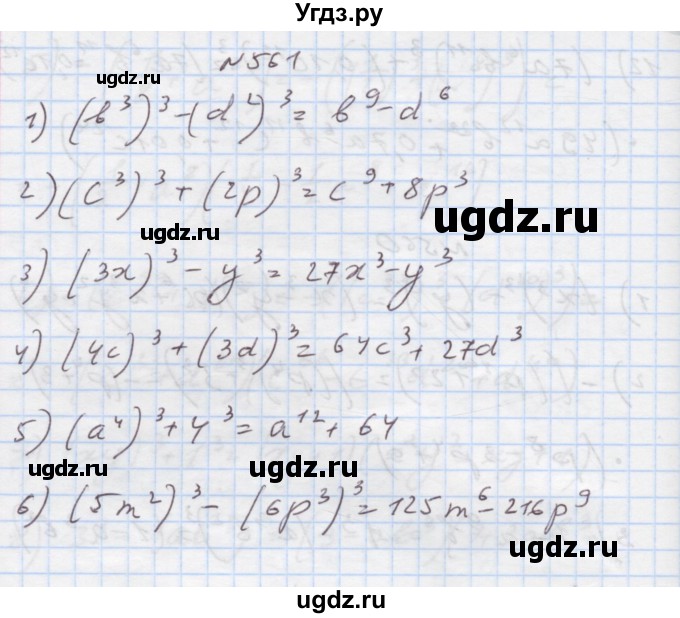 Угдз.ру
№561
ugdz.ru
1) (b³)³-(d⁴)³= b⁹-d⁶
2) (c³)³+(2p)³=c⁹+8p³
ugdz.ru
ugdz.ru
3) (3x)³-y³=27x³-y³
ugdz.ru
4) (4c)³+(3d)³=64c³+27d³
5) (a⁴)³+4³=a¹²+64
ugdz.ru
ugdz.ru
6) (5m²)³-(6p³)³=125m⁶-216p⁹
ugdz.ru
ugdz.ru
ugdz.ru